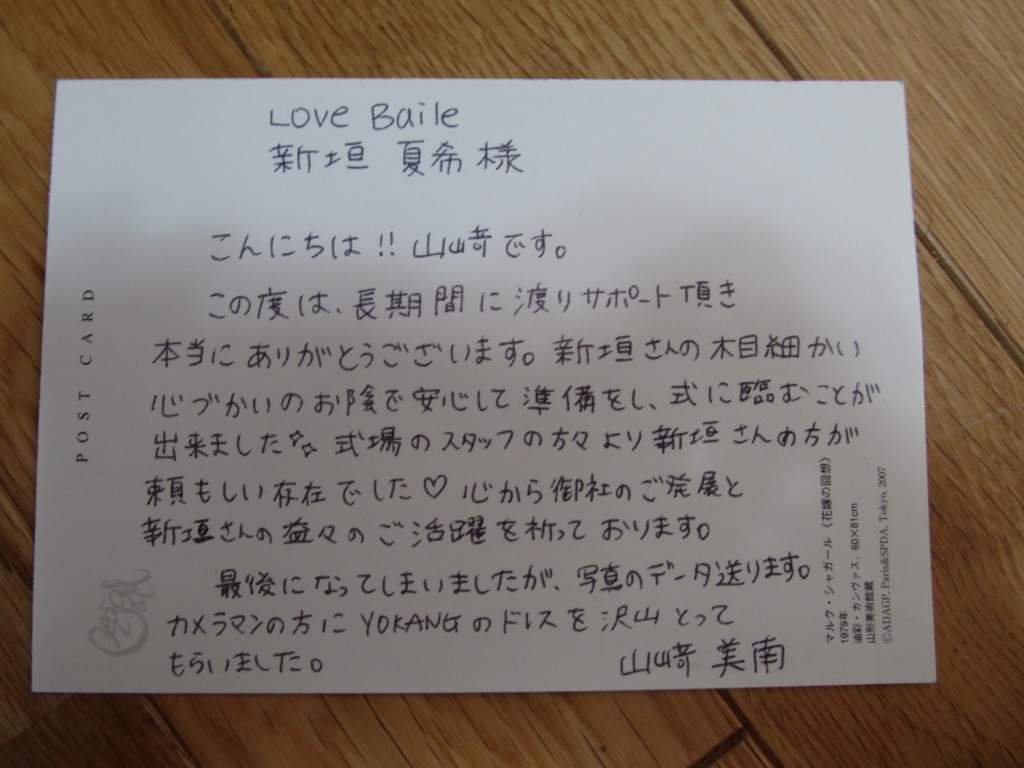 Love Baile
新垣 夏希 様
こんにちは!! 山﨑です。
この度は、長期間に渡りサポート頂き
本当にありがとうございます。新垣さんの木目細かい
心づかいのお陰で安心して準備をし、式に臨むことが
出来ました☆☆ 式場のスタッフの方々より新垣さんの方が
頼もしい存在でした♡ 心から御社のご発展と
新垣さんの益々のご活躍を祈っております。
最後になってしまいましたが、写真のデータ送ります。
カメラマンの方にYOKANGのドレスを沢山とって
もらいました。
山﨑 美南
POST CARD
マルク・シャガール《花嫁の回想》
1979年
油彩・カンヴァス、60×81cm
山形美術館蔵
©ADAGP, Paris&SPDA, Tokyo, 2007